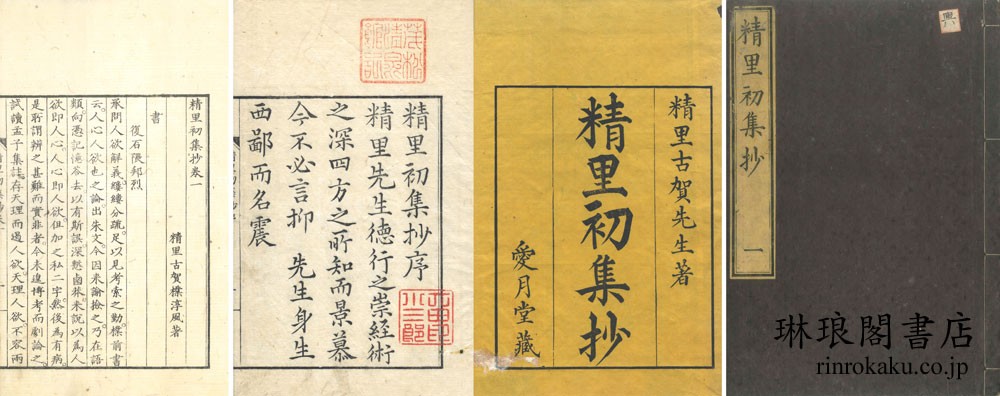 精里初集抄
一
精里古賀先生著
精里初集抄
愛月堂藏
精里初集抄序
精里先生德行之崇經術
之深四方之所知而景慕
今不必言抑　先生身生
西鄙而名震
精里初集抄卷一
精里古賀樸淳風著
書
復石隈邦烈
承問人欲解義縷縷分疏足以見考索之勤樸前書
云人心人欲也之論出朱文今因來論撿之乃在語
類向憑記憶答去以有斯誤深愁鹵莽來說以為人
欲即人心人心即人欲但加之私二字然後為有病
是所謂辨之甚難而實非者今未遑博考而劇論之
試讀孟子集註存天理而遏人欲天理人欲不容兩
琳琅閣書店
rinrokaku.co.jp